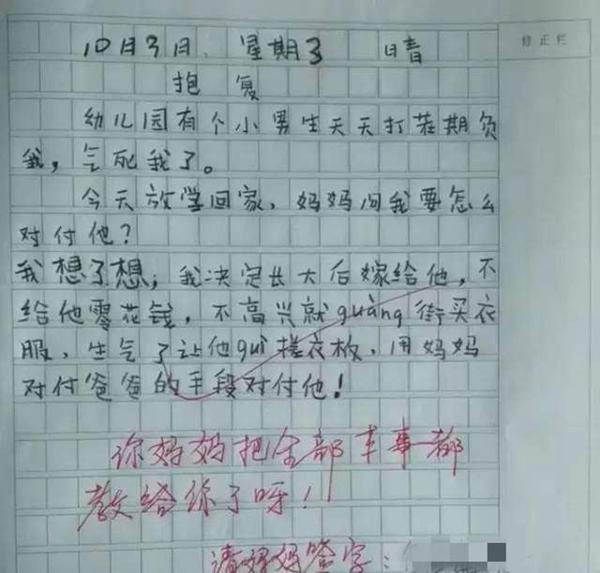 10月3日. 星期3 晴
修正栏
抱复
幼儿园有个小男生天天打若期负
我，气死我了。
今天放学回家，妈妈问我要怎么
对付他？
我想了想，我决定长大后嫁给他，不
给他零花钱，不高兴就guàng街买衣
服，生气了让他guì搓衣板，用妈妈
对付爸爸的手段对付他！
你妈妈把全部本事都
教给你了呀！
请妈妈签字：